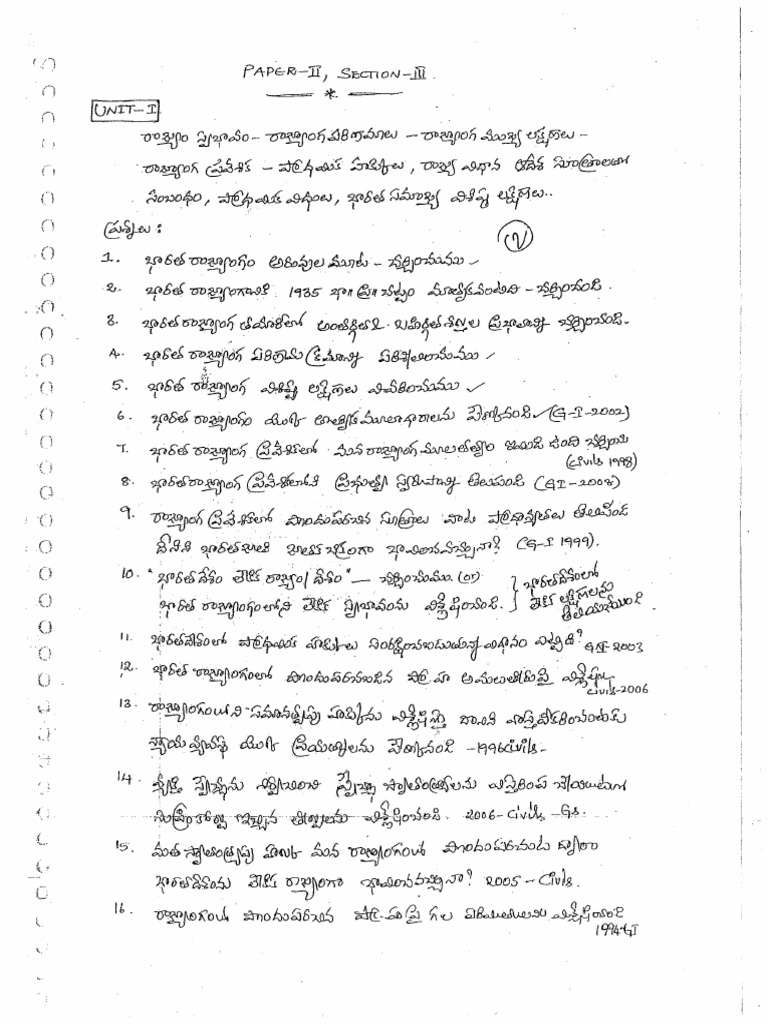 PAPER-II, SECTION-III.
*
UNIT-I
రాజ్యాంగ స్వభావం - రాజ్యాంగ పరిణామాలు - రాజ్యాంగ ముఖ్య లక్షణాలు -
రాజ్యాంగ ప్రవేశిక - ప్రాథమిక హక్కులు, రాజ్య విధాన ఆదేశ సూత్రాలతో
సంబంధం, ప్రాథమిక విధులు, భారత సమాఖ్య విశిష్ట లక్షణాలు..
ప్రశ్నలు :
1. భారత రాజ్యాంగం అరువుల మూట - చర్చించుము
2. భారత రాజ్యాంగానికి 1935 భా॥ ప్ర॥ చట్టం మాతృకవంటిది - చర్చించండి.
3. భారత రాజ్యాంగ తయారీలో అంతర్గత & బహిర్గత శక్తుల ప్రభావాన్ని చర్చించండి.
4. భారత రాజ్యాంగ పరిణామ క్రమాన్ని పరిశీలించుము
5. భారత రాజ్యాంగ విశిష్ట లక్షణాలు వివరించుము
6. భారత రాజ్యాంగం యొక్క తాత్విక మూలాధారాలను పేర్కొనండి (G-I-2002)
7. భారత రాజ్యాంగ ప్రవేశికలో మన రాజ్యాంగ మూలతత్వం ఇమిడి ఉంది చర్చించు
(Civils 1998)
8. భారత రాజ్యాంగ ప్రవేశికలోని ప్రభుత్వ స్వరూపాన్ని తెలుపండి (GI-2008)
9. రాజ్యాంగ ప్రవేశికలో పొందుపరచిన సూత్రాలు వాటి ప్రాధాన్యతలు తెలిపండి
దీనిని భారత జాతి జాతకచక్రంగా భావించవచ్చునా? (G-I 1999).
10. "భారతదేశం లౌకిక రాజ్యం/దేశం" - చర్చించుము. (or)
భారత రాజ్యాంగంలోని లౌకిక స్వభావంను విశ్లేషించండి.
భారతదేశంలో
లౌకిక లక్షణాలను
తెలియజేయండి.
11. భారతదేశంలో ప్రాథమిక హక్కులు సంరక్షించబడుతున్న విధానం ఎట్టిది? GI-2003
12. భారత రాజ్యాంగంలో పొందుపరచబడిన ప్రా. హ అమలుతీరుపై విశ్లేషణ
Civils-2006
13. రాజ్యాంగంలోని సమానత్వపు హక్కును విశ్లేషిస్తూ దానిని వాస్తవీకరించుటకు
న్యాయ వ్యవస్థ యొక్క ప్రయత్నాలను పేర్కొనండి - 1996 Civils-
14. వ్యక్తి స్వేచ్ఛను స్వేచ్ఛా స్వాతంత్ర్యాలను విస్తరింప చేయుటలో
సుప్రీంకోర్టు ఇచ్చిన తీర్పులను విశ్లేషించండి. 2006-Civils-GS.
15. మత స్వాతంత్ర్యపు హక్కు మన రాజ్యాంగంలో పొందుపరుచుట ద్వారా
భారతదేశంను లౌకిక రాజ్యాంగా భావించవచ్చునా? 2005-Civils.
16. రాజ్యాంగంలో పొందుపరచిన ప్రా. హ పై గల పరిమితులను విశ్లేషించండి
1994-GI